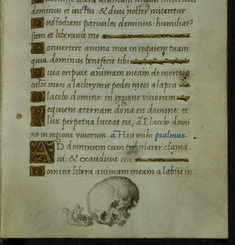 dominus et iustus, & deus noster miseretur
Custodiens parvulos dominus: humilia-
tus sum et liberavit me
Convertere anima mea in requiem tuam
quia dominus benefecit tibi
Quia eripuit animam meam de morte
oculos meos a lachrymis pedes meos a lapsu
Placebo domino in regione vivorum
Requiem aeternam dona eis domine: et
lux perpetua luceat eis, a Placebo domi
no in regione vivorum. a Heu mihi psalmus.
AD dominum cum tribularer clama-
vi: & exaudivit me
Domine libera animam meam a labiis in